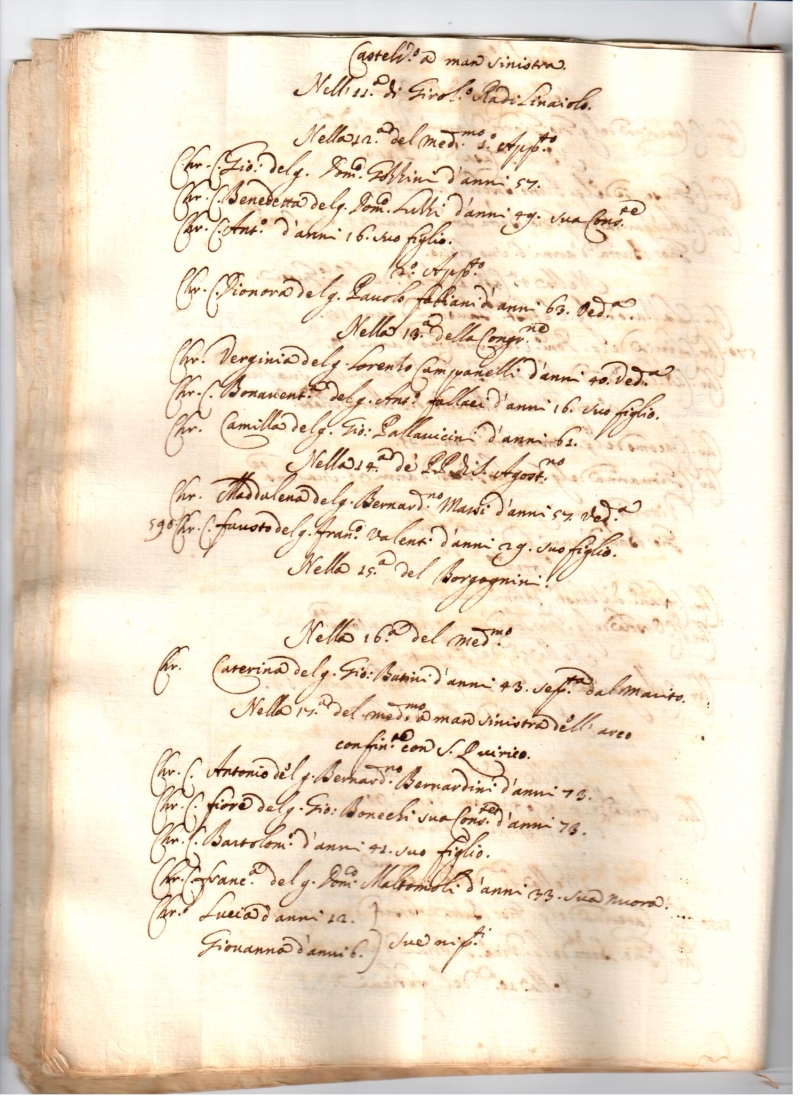 Castelv.o a man sinistra.
Nell'11.a di Girol.o Radi Linaiolo.
Nella 12.a del med.mo 1.o App.to
Chr. C. Gio: del q. Dom.co Gozzini d'anni 57.
Chr. C. Benedetta del q. Dom.co Lulli d'anni 49. sua Cons.te
Chr. C. Ant.o d'anni 16. suo figlio.
2.o App.to
Chr. C. Dionora del q. Pavolo fabiani d'anni 63. Ved.a
Nella 13.a della Congr.ne
Chr. Verginia del q. Lorenzo Campanelli d'anni 40. Ved.a
Chr. C. Bonavent.a del q. Ans.o fallaci d'anni 16. suo figlio.
Chr. Camilla del q. Gio: Pallavicini d'anni 61.
Nella 14.a de PP. di S. Agost.no
Chr. Maddalena del q. Bernard.no Massi d'anni 57. Ved.a
590 Chr. C. fausto del q. fran.co Valenti d'anni 29. suo figlio.
Nella 15.a del Borgognini.
Nella 16.a del med.mo
Chr. Caterina del q. Gio: Butini d'anni 43. sep.ta dal Marito.
Nella 17.a del med.mo a man sinistra dell'arco
confin.te con S. Quirico.
Chr. C. Antonio del q. Bernard.no Bernardini d'anni 73.
Chr. C. fiore del q. Gio: Bonechi sua Cons.te d'anni 73.
Chr. C. Bartolom.o d'anni 41. suo figlio.
Chr. C. franc.a del q. Dom.co Maltomoli d'anni 33. sua nuora.
Chr. Lucia d'anni 12.
Giovanna d'anni 6. } sue nip.ti